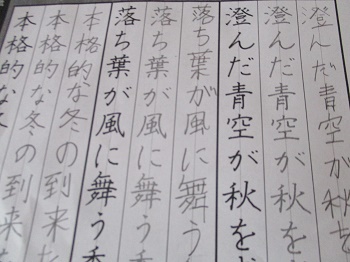 澄んだ青空が秋を
澄んだ青空が秋を
澄んだ青空が秋を
落ち葉が風に舞う
落ち葉が風に舞う
落ち葉が風に舞う
本格的な冬の到来を
本格的な冬の到来を
本格的な冬